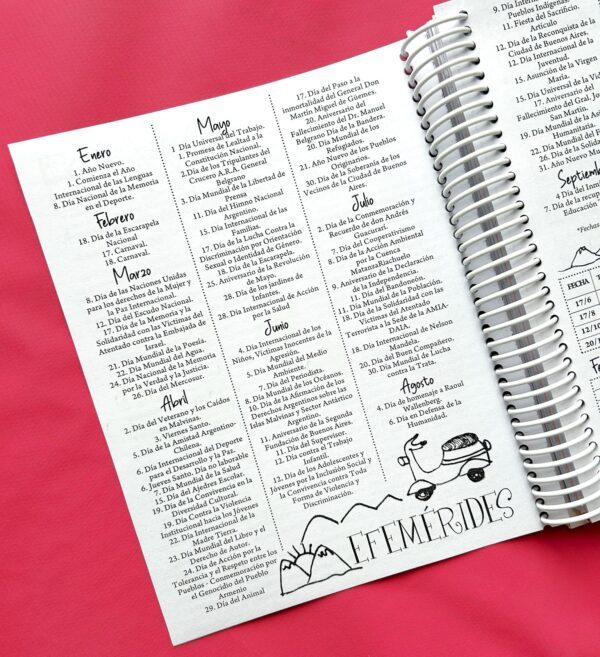 Enero
1. Año Nuevo.
1. Comienza el Año
Internacional de las Lenguas
8. Día Nacional de la Memoria
en el Deporte.
Febrero
18. Día de la Escarapela
Nacional
17. Carnaval.
18. Carnaval.
Marzo
8. Día de las Naciones Unidas
para los derechos de la Mujer y
la Paz Internacional.
12. Día del Escudo Nacional.
17. Día de la Memoria y la
Solidaridad con las Víctimas del
Atentado contra la Embajada de
Israel.
21. Día Mundial de la Poesía.
22. Día Mundial del Agua.
24. Día Nacional de la Memoria
por la Verdad y la Justicia.
26. Día del Mercosur.
Abril
2. Día del Veterano y los Caídos
en Malvinas.
3. Viernes Santo.
5. Día de la Amistad Argentino-
Chilena.
6. Día Internacional del Deporte
para el Desarrollo y la Paz.
6. Jueves Santo. Día no laborable
7. Día Mundial de la Salud
15. Día del Ajedrez Escolar.
19. Día de la Convivencia en la
Diversidad Cultural.
19. Día Contra la Violencia
Institucional hacia los Jóvenes
22. Día Internacional de la
Madre Tierra.
23. Día Mundial del Libro y el
Derecho de Autor.
24. Día de Acción por la
Tolerancia y el Respeto entre los
Pueblos - Conmemoración por
el Genocidio del Pueblo
Armenio
29. Día del Animal
Mayo
1. Día Universal del Trabajo.
1. Promesa de Lealtad a la
Constitución Nacional.
2.Día de los Tripulantes del
Crucero A.R.A. General
Belgrano
3. Día Mundial de la Libertad de
Prensa
11. Día del Himno Nacional
Argentino.
15. Día Internacional de las
Familias.
17. Día de la Lucha Contra la
Discriminación por Orientación
Sexual o Identidad de Género.
18. Día de la Escarapela.
25. Aniversario de la Revolución
de Mayo.
28. Día de los jardines de
Infantes.
28. Día Internacional de Acción
por la Salud
Junio
4. Día Internacional de los
Niños, Víctimas Inocentes de la
Agresión.
5. Día Mundial del Medio
Ambiente.
7. Día del Periodista.
8. Día Mundial de los Océanos.
10. Día de la Afirmación de los
Derechos Argentinos sobre las
Islas Malvinas y Sector Antártico
Argentino.
11. Aniversario de la Segunda
Fundación de Buenos Aires.
11. Día del Supervisor.
12. Día contra el Trabajo
Infantil.
12. Día de los Adolescentes y
Jóvenes por la Inclusión Social y
la Convivencia contra Toda
Forma de Violencia y
Discriminación.
17. Día del Paso a la
inmortalidad del General Don
Martín Miguel de Güemes.
20. Aniversario del
Fallecimiento del Dr. Manuel
Belgrano Día de la Bandera.
20. Día Mundial de los
Refugiados.
21. Año Nuevo de los Pueblos
Originarios.
30. Día de la Soberanía de los
Vecinos de la Ciudad de Buenos
Aires.
Julio
2. Día de la Conmemoración y
Recuerdo de don Andrés
Guacurari.
7. Día del Cooperativismo
8. Día de la Acción Ambiental
por la Cuenca
MatanzaRiachuelo
9. Aniversario de la Declaración
de la Independencia.
11. Día del Bandoneón.
11. Día Mundial de la Población.
18. Día de la Solidaridad con las
Víctimas del Atentado
Terrorista a la Sede de la AMIA-
DAIA.
18. Día Internacional de Nelson
Mandela.
20. Día del Buen Compañero.
30. Día Mundial de Lucha
contra la Trata.
Agosto
4. Día de homenaje a Raoul
Wallenberg.
6. Día en Defensa de la
Humanidad.
EFEMÉRIDES
9. Día Internacional
Pueblos Indígenas.
11. Fiesta del Sacrificio.
Artículo
12. Día de la Reconquista de la
Ciudad de Buenos Aires.
12. Día Internacional de la
Juventud.
15. Asunción de la Virgen
María.
17. Aniversario del
Fallecimiento del Gral. Jo
San Martín.
19. Día Mundial de la Asis
Humanitaria.
26. Día de la Solida
31. Año Nuevo Mus
Septiem
4. Día del Inm
7. Día de la recup
Educación
*Fechas
FECHA
17/6
17/8
12/10
20/